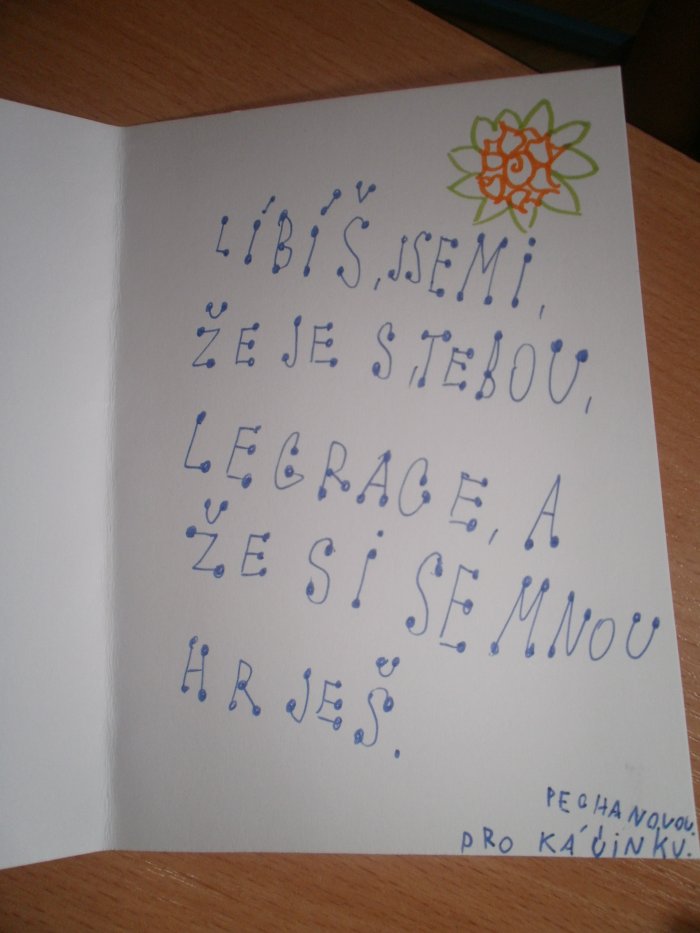 LÍBÍŠ, JSEMI,
ŽE JE S, TEBOU,
LEGRACE, A
ŽE SI SE MNOU
HRJEŠ.
PECHANOVOU.
PRO KÁJINKU.